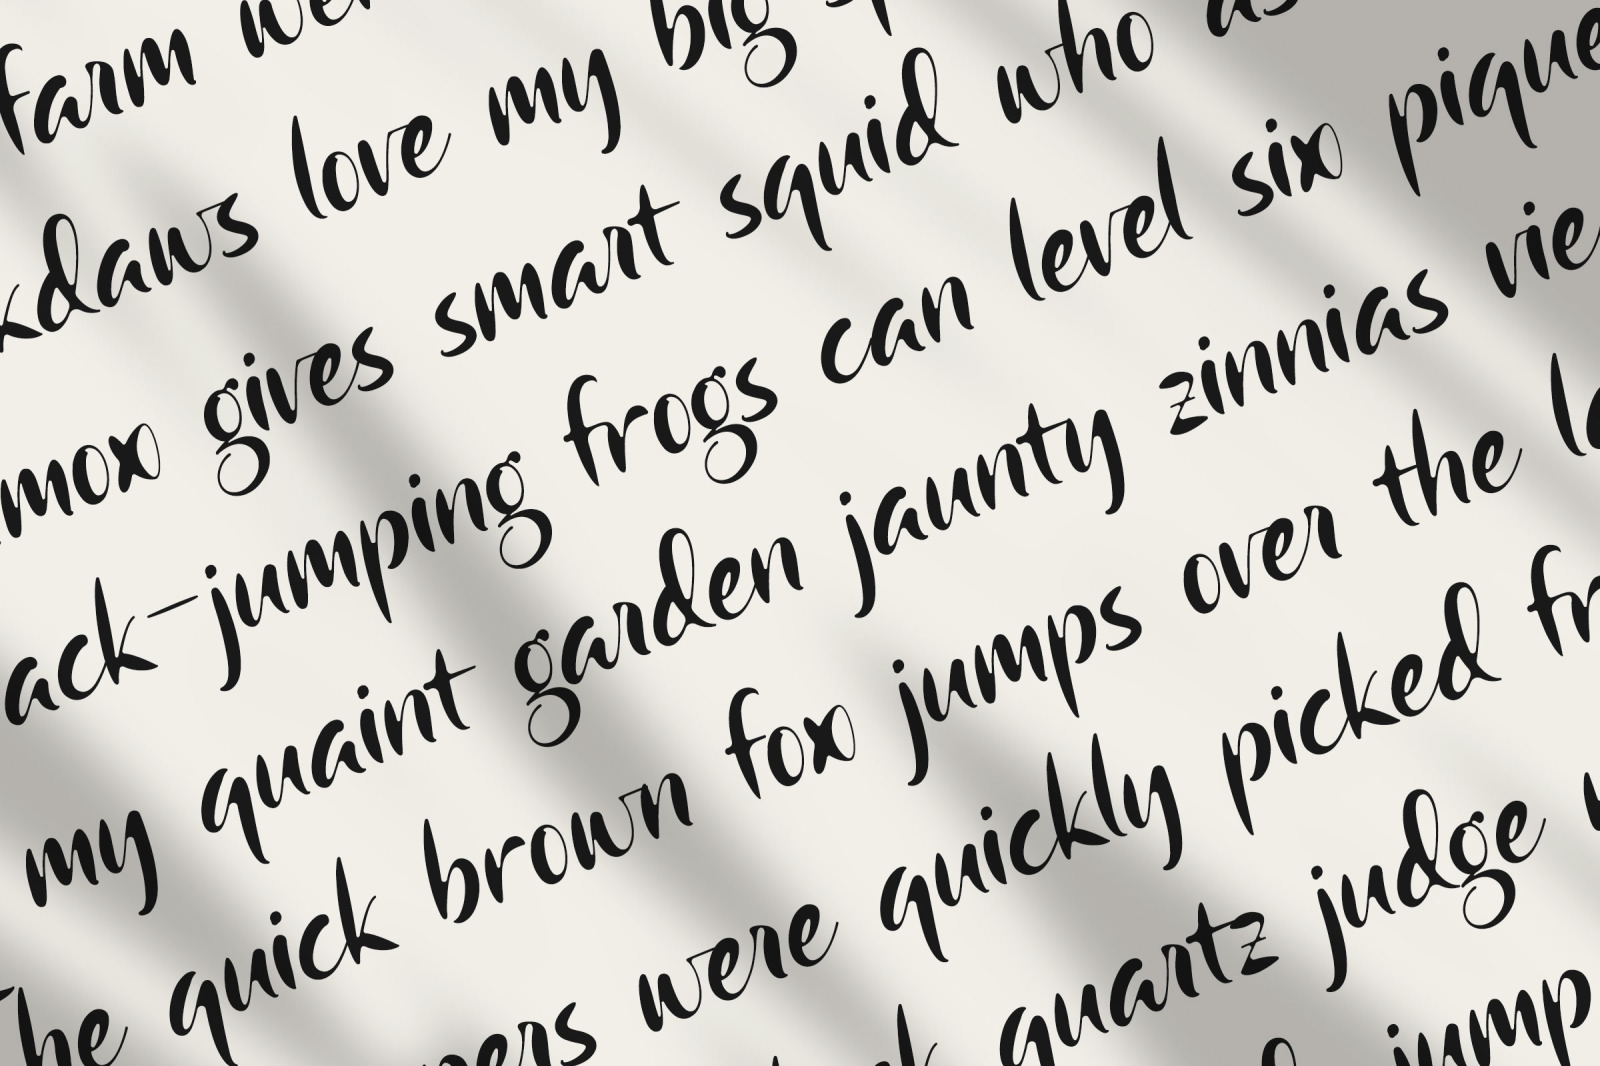 farm were
kdaws love my big
mox gives smart squid who
ack-jumping frogs can level six pique
my quaint garden jaunty zinnias vie
The quick brown fox jumps over the
pers were quickly picked fr
quartz judge
jump